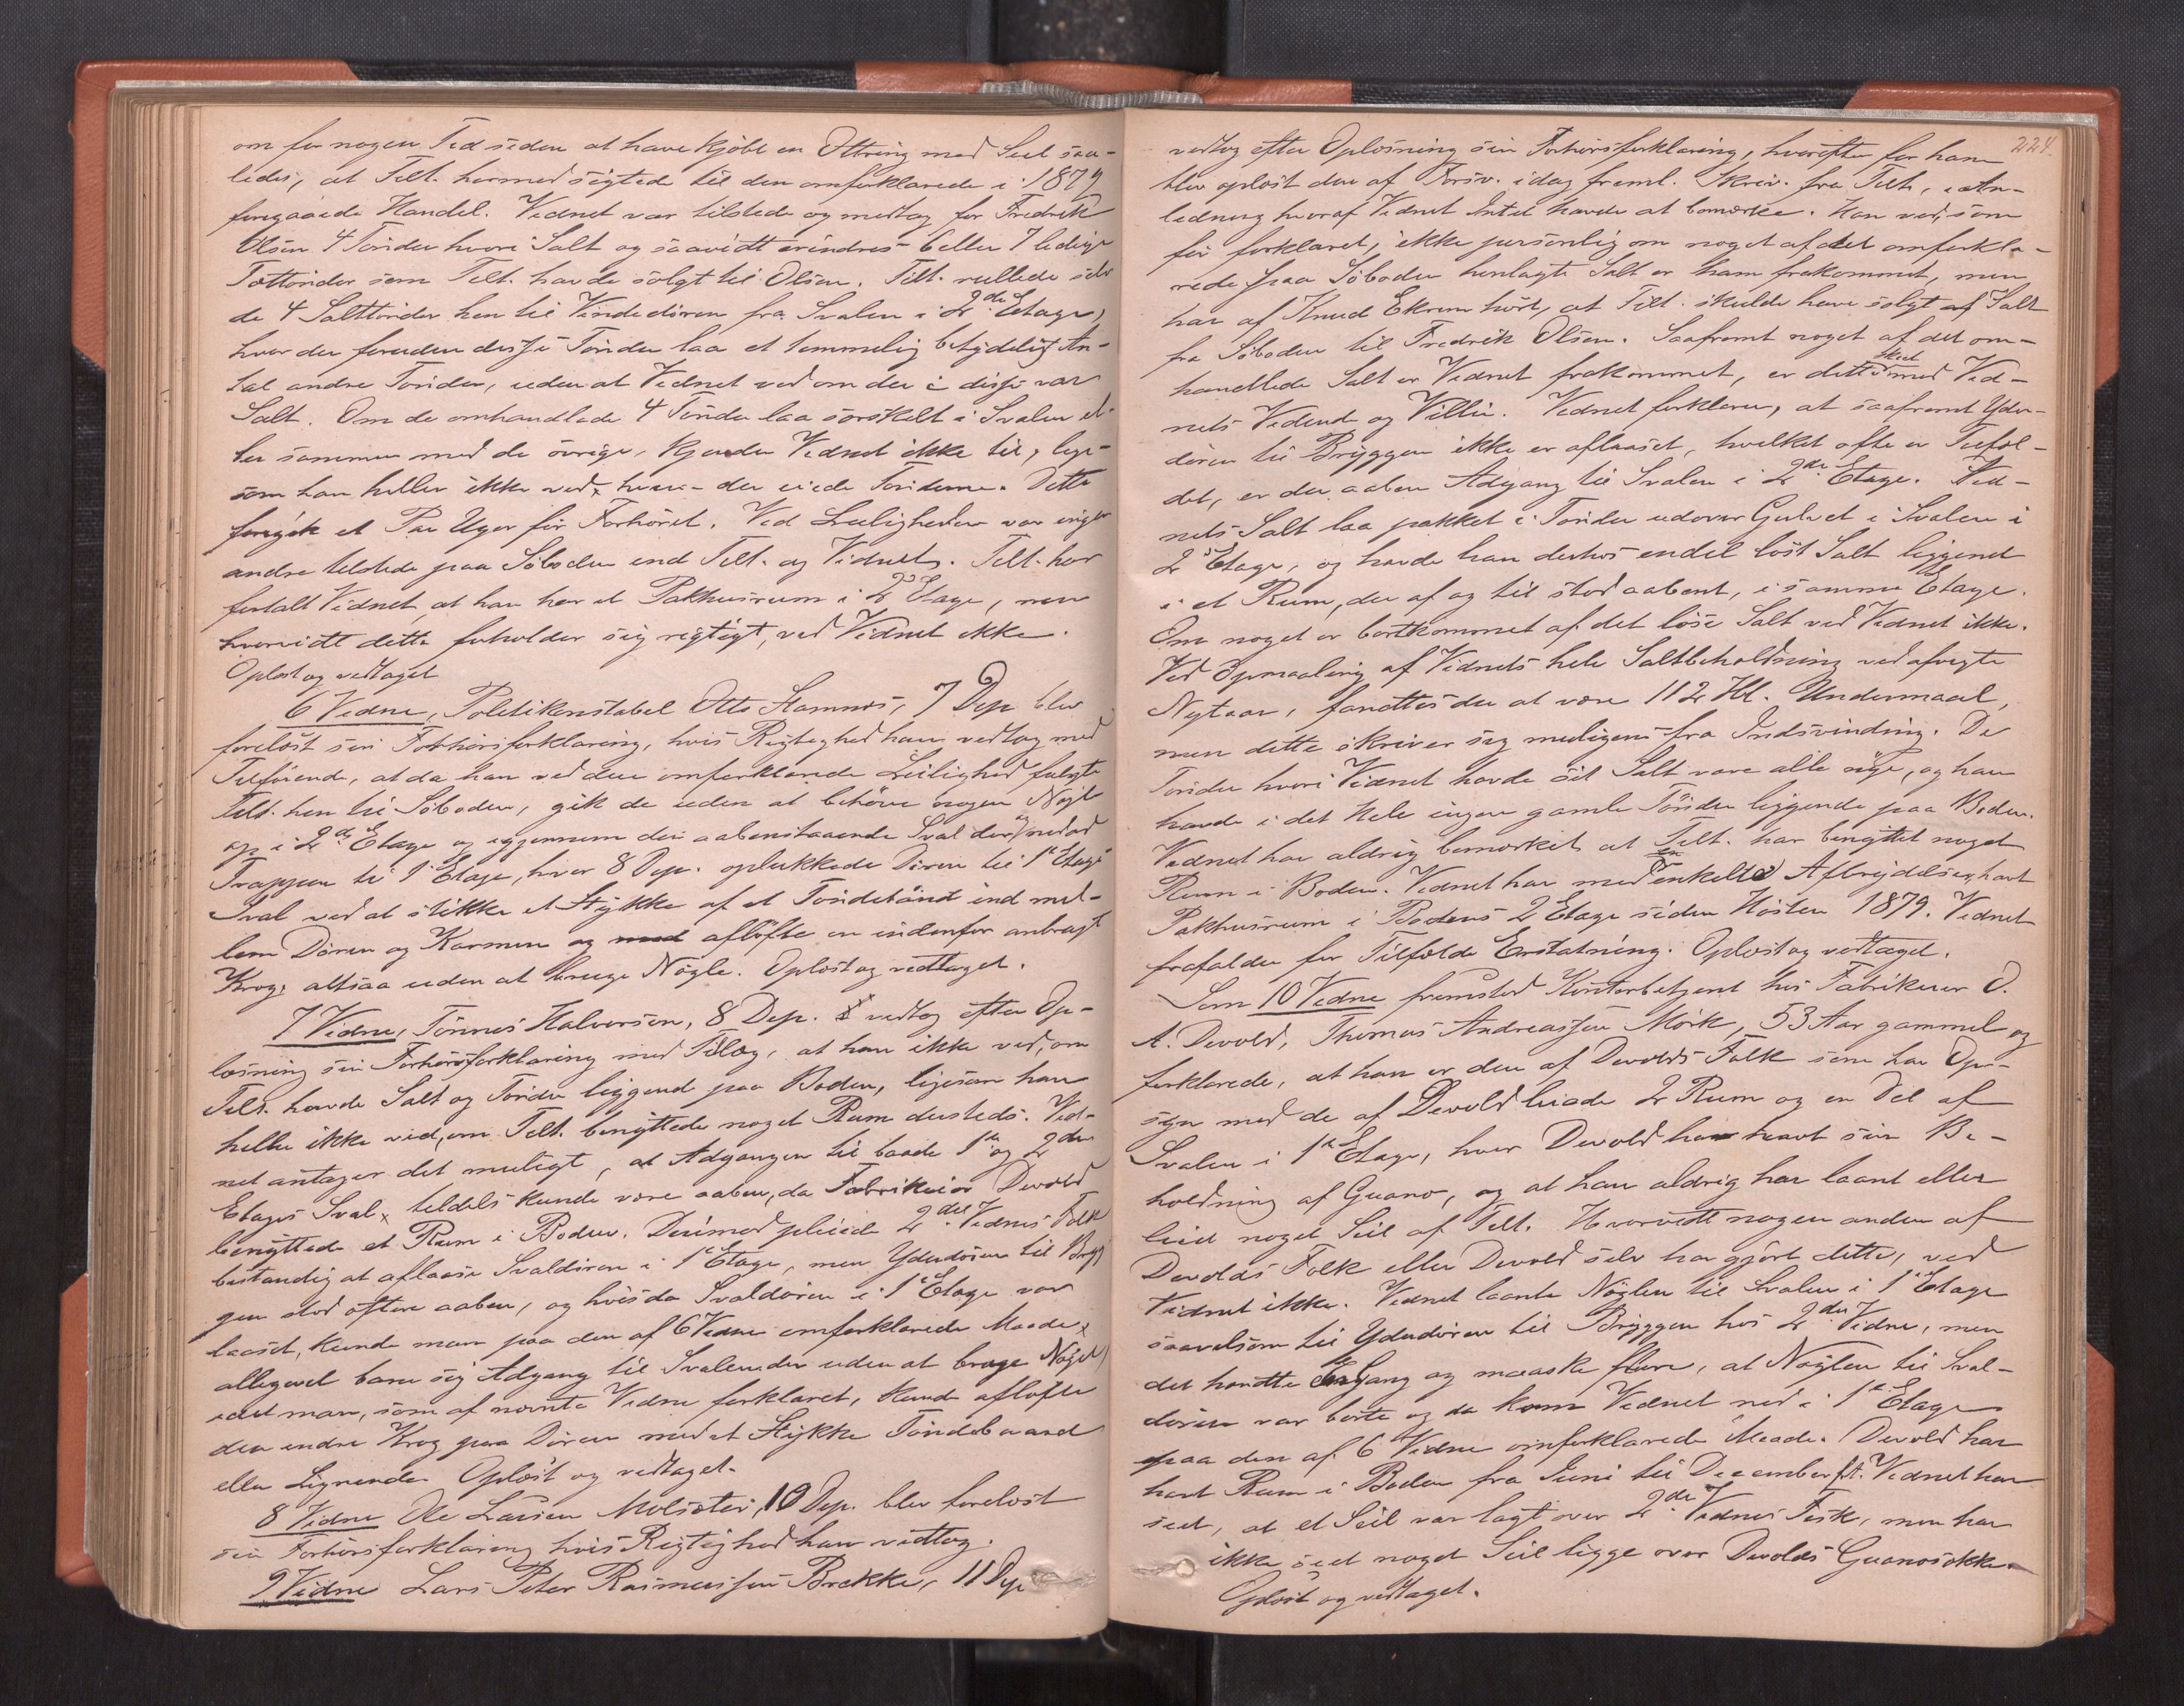 om for nogen Tid siden at have kjøbt en Ottring med Seil saa-
ledes, at Tilt. hermed sigtede til den omforklarede i 1879
foregaaede Handel. Vidnet var tilstede og modtog for Fredrik
Olsen 4 Tønder hvori Salt og saavidt erindres 6 eller 7 ledige
Tøttønder som Tilt. havde solgt til Olsen. Tilt. rullede selv
de 4 Salttønder hen til Vindedøren fra Svalen i 2den Etage,
hvor der foruden disse Tønder laa et temmelig betydeligt An-
tal andre Tønder, uden at Vidnet ved om der i disse var
Salt. Om de omhandlede 4 Tønder laa særskilt i Svalen el-
ler sammen med de øvrige, kjender Vidnet ikke til, lige-
som han heller ikke ved, hvem der eiede Tønderne. Dette
foregik et Par Uger før Forhøret. Ved Leiligheden var ingen
andre tilstede paa Søboden end Tilt. og Vidnet. Tilt. har
fortalt Vidnet, at han har et Pakhusrum i 2 Etage, men
hvorvidt dette forholder sig rigtigt, ved Vidnet ikke.
Oplæst og vedtaget
6 Vidne, Politikonstabel Otto Hamnes, 7 Dep. blev
forelæst sin Forhørsforklaring, hvis Rigtighed han vedtog med
Tilføiende, at da han ved den omforklarede Leilighed fulgte
Tilt. hen til Søboden, gik de uden at behøve nogen Nøgle
op i 2den Etage og igjennem den aabenstaaende Sval der og nedad
Trappen til 1 Etage, hvor 8 Dep. oplukkede Døren til 1ste Etages
Sval ved at stikke et Stykke af et Tøndebånd ind mel-
lem Døren og Karmen og med afløfte en indenfor anbragt
Krog, altsaa uden at bruge Nøgle. Oplæst og vedtaget.
7 Vidne, Tønnes Halvorsen, 8 Dep. vedtog efter Op-
læsning sin Forhørsforklaring med Tillæg, at han ikke ved, om
Tilt. havde Salt og Tønder liggende paa Boden, ligesom han
heller ikke ved, om Tilt. benyttede noget Rum dersteds. Vid-
net antager det muligt, at Adgangen til baade 1ste og 2den
Etages Sval, tildels kunde være aaben, da Fabrikeier Devold
benyttede et Rum i Boden. Derimod pleiede 2det Vidnes Folk
bestandig at aflaase Svaldøren i 1ste Etage, men Yderdøren til Bryg-
gen stod oftere aaben, og hvis da Svaldøren i 1ste Etage var
laaset, kunde man paa den af 6 Vidne omforklarede Maade,
alligevel bane sig Adgang til Svalen der uden at bruge Nøgel,
idet man, som af nævnte Vidne forklaret, kunde afløfte
den indre Krog paa Døren med et Stykke Tøndebaand
eller Lignende. Oplæst og vedtaget.
8 Vidne Ole Larsen Molsæter, 10 Dep. blev forelæst
sin Forhørsforklaring hvis Rigtighed han vedtog.
9 Vidne Lars Peter Rasmussen Brekke, 11 Dep
224.
vedtog efter Oplæsning sin Forhørsforklaring, hvorefter for ham
blev oplæst den af Forsv. idag freml. Skriv. fra Tilt., i An-
ledning hvoraf Vidnet Intet havde at bemærke. Han ved, som
før forklaret, ikke personlig om noget af det omforkla-
rede paa Søboden henlagte Salt er ham frakommet, men
har af Knud Ekrem hørt, at Tilt. skulde have solgt af Salt
fra Søboden til Fredrik Olsen. Saafremt noget af det om-
handlede Salt er Vidnet frakommet, er dette skeet mod Vid-
nets Vidende og Villie. Vidnet forklarer, at saafremt Yder-
døren til Bryggen ikke er aflaaset, hvilket ofte er Tilfæl-
det, er der aaben Adgang til Svalen i 2den Etage. Vid-
nets Salt laa pakket i Tønder udover Gulvet i Svalen i
2 Etage, og havde han derhos endel løst Salt liggende
i et Rum, der af og til stod aabent, i samme Etage.
Om noget er bortkommet af det løse Salt ved Vidnet ikke.
Ved Opmaaling af Vidnets hele Saltbeholdning ved afvigte
Nytaar, fandtes der at være 112 Hl. Undermaal,
men dette skriver sig muligens fra Indsvinding. De
Tønder hvori Vidnet havde sit Salt vare alle nye, og han
havde i det Hele ingen gamle Tønder liggende paa Boden.
Vidnet har aldrig bemærket at Tilt. har benyttet noget
Rum i Boden. Vidnet har med en enkelt Afbrydelse, havt
Pakhusrum i Bodens 2 Etage siden Høsten 1879. Vidnet
frafalder for Tilfælde Erstatning. Oplæst og vedtaget.
Som 10 Vidne fremstod Kontorbetjent hos Fabrikeier O.
A. Devold, Thomas Andreassen Mørk, 53 Aar gammel og
forklarede, at han er den af Devolds Folk som har Op-
syn med de af Devold leiede 2 Rum og en Del af
Svalen i 1ste Etage, hvor Devold har havt sin Be-
holdning af Guano, og at han aldrig har laant eller
leiet noget Seil af Tilt. Hvorvidt nogen anden af
Devolds Folk eller Devold selv har gjort dette, ved
Vidnet ikke. Vidnet laante Nøglen til Svalen i 1ste Etage
saavelsom til Yderdøren til Bryggen hos 2det Vidne, men
det hændte en Gang og maaske flere, at Nøglen til Sval-
døren var borte og da kom Vidnet ned i 1ste Etage
paa den af 6 Vidne omforklarede Maade. Devold har
havt Rum i Boden fra Juni til December f. A. Vidnet har
seet, at et Seil var lagt over 2det Vidnes Fisk, men har
ikke seet noget Seil ligge over Devolds Guanosække.
Oplæst og vedtaget.